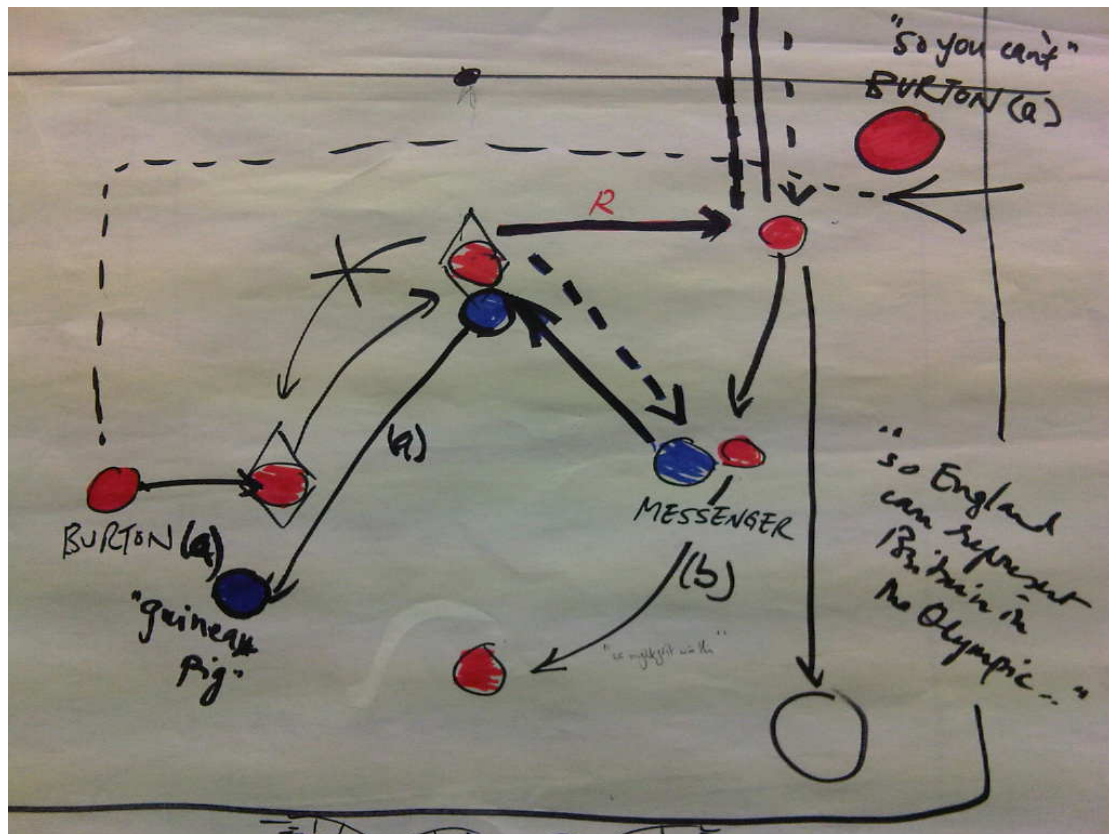 "so you can't"
BURTON (a)
R
(a)
BURTON (a)
"guinea
Pig"
MESSENGER
(b)
"so England
can represent
Britain in
the Olympic..."